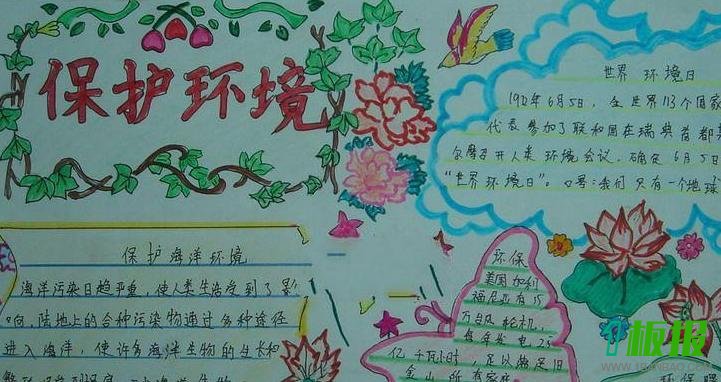 保护环境
世界 环境日
1972年6月5日，全世界113个国家
代表参加了联和国在瑞典首都
尔摩召开人类环境会议，确定6月5日
“世界环境日”。口号：我们只有一个地球
保护海洋环境
海洋污染日趋严重，使人类生活受到了影
响，陆地上的各种污染物通过多种途径
进入海洋，使许多海洋生物的生长和
环保
美国加利
福尼亚有15
万台风轮机，
每年发电25
亿千瓦小时，足以满足旧
金山所有家庭
板报
WWW.1BANBAO.COM